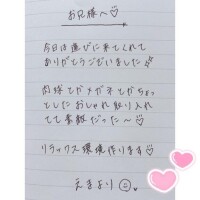 お兄様へ♡
今日は遊びに来てくれて
ありがとうございました
メガネ
てした おしゃれ取り入れ
てて素敵だった〜♡
リラックス環境作ります♡
えまより